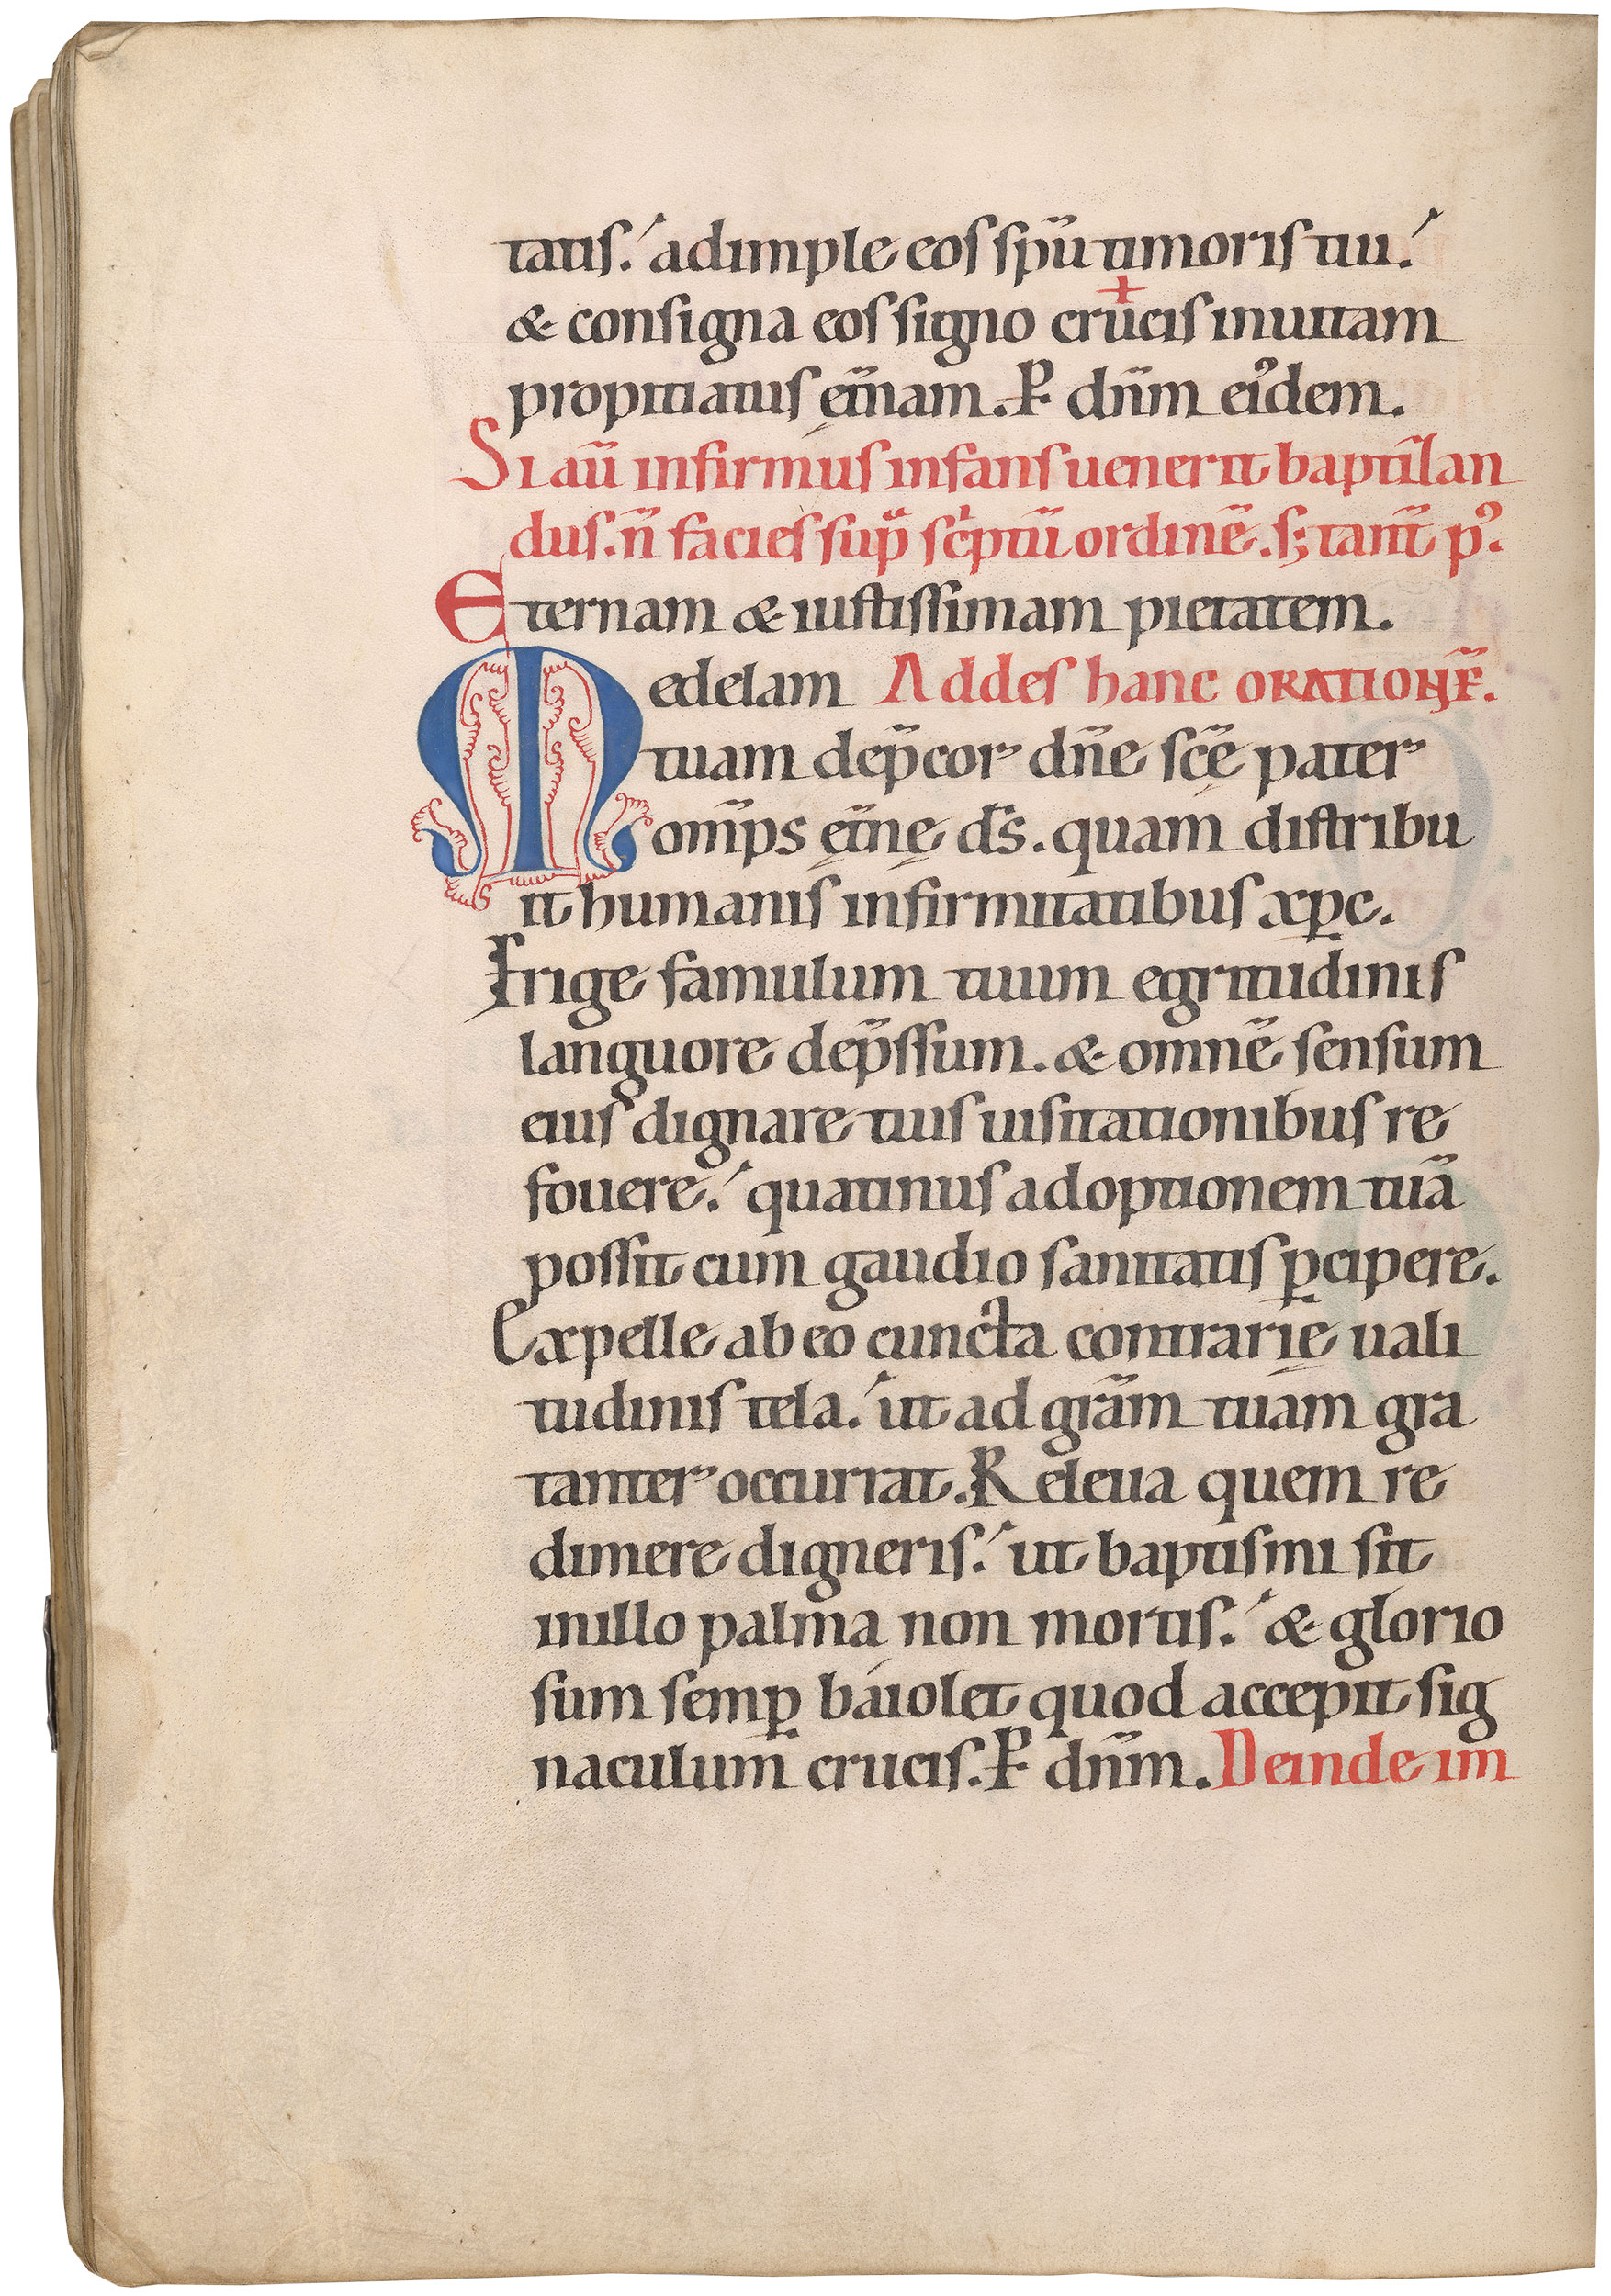 tatis. adimple eos spū timoris tui.
& consigna eos signo crucis in uitam
propitiatus ęt̄nam. P dn̄m eidem.
Si aū infirmus infans uenerit baptilan
dus. n̄ facies sup̄ sc̓ptū ordinē. s; tant̄ p᾽.
Eternam & iustissimam pietatem.
Medelam Addes hanc orationē.
tuam dep̄cor dn̄e sc̄ę pater
om̄ps ęt̄nę ds̄. quam distribu
it humanis infirmitatibus xp̄c.
Erige famulum tuum egritudinis
languore dep̄ssum. & omnē sensum
eius dignare tuis uisitationibus re
fouere. quatinus adoptionem tuā
possit cum gaudio sanitatis ꝑcipere.
Expelle ab eo cuncta contrarię uali
tudinis tela. ut ad grām tuam gra
tanter occurrat. Releua quem re
dimere digneris. ut baptismi sit
in illo palma non mortis. & glorio
sum semꝑ baiolet quod accepit sig
naculum crucis. P dn̄m. Deinde im